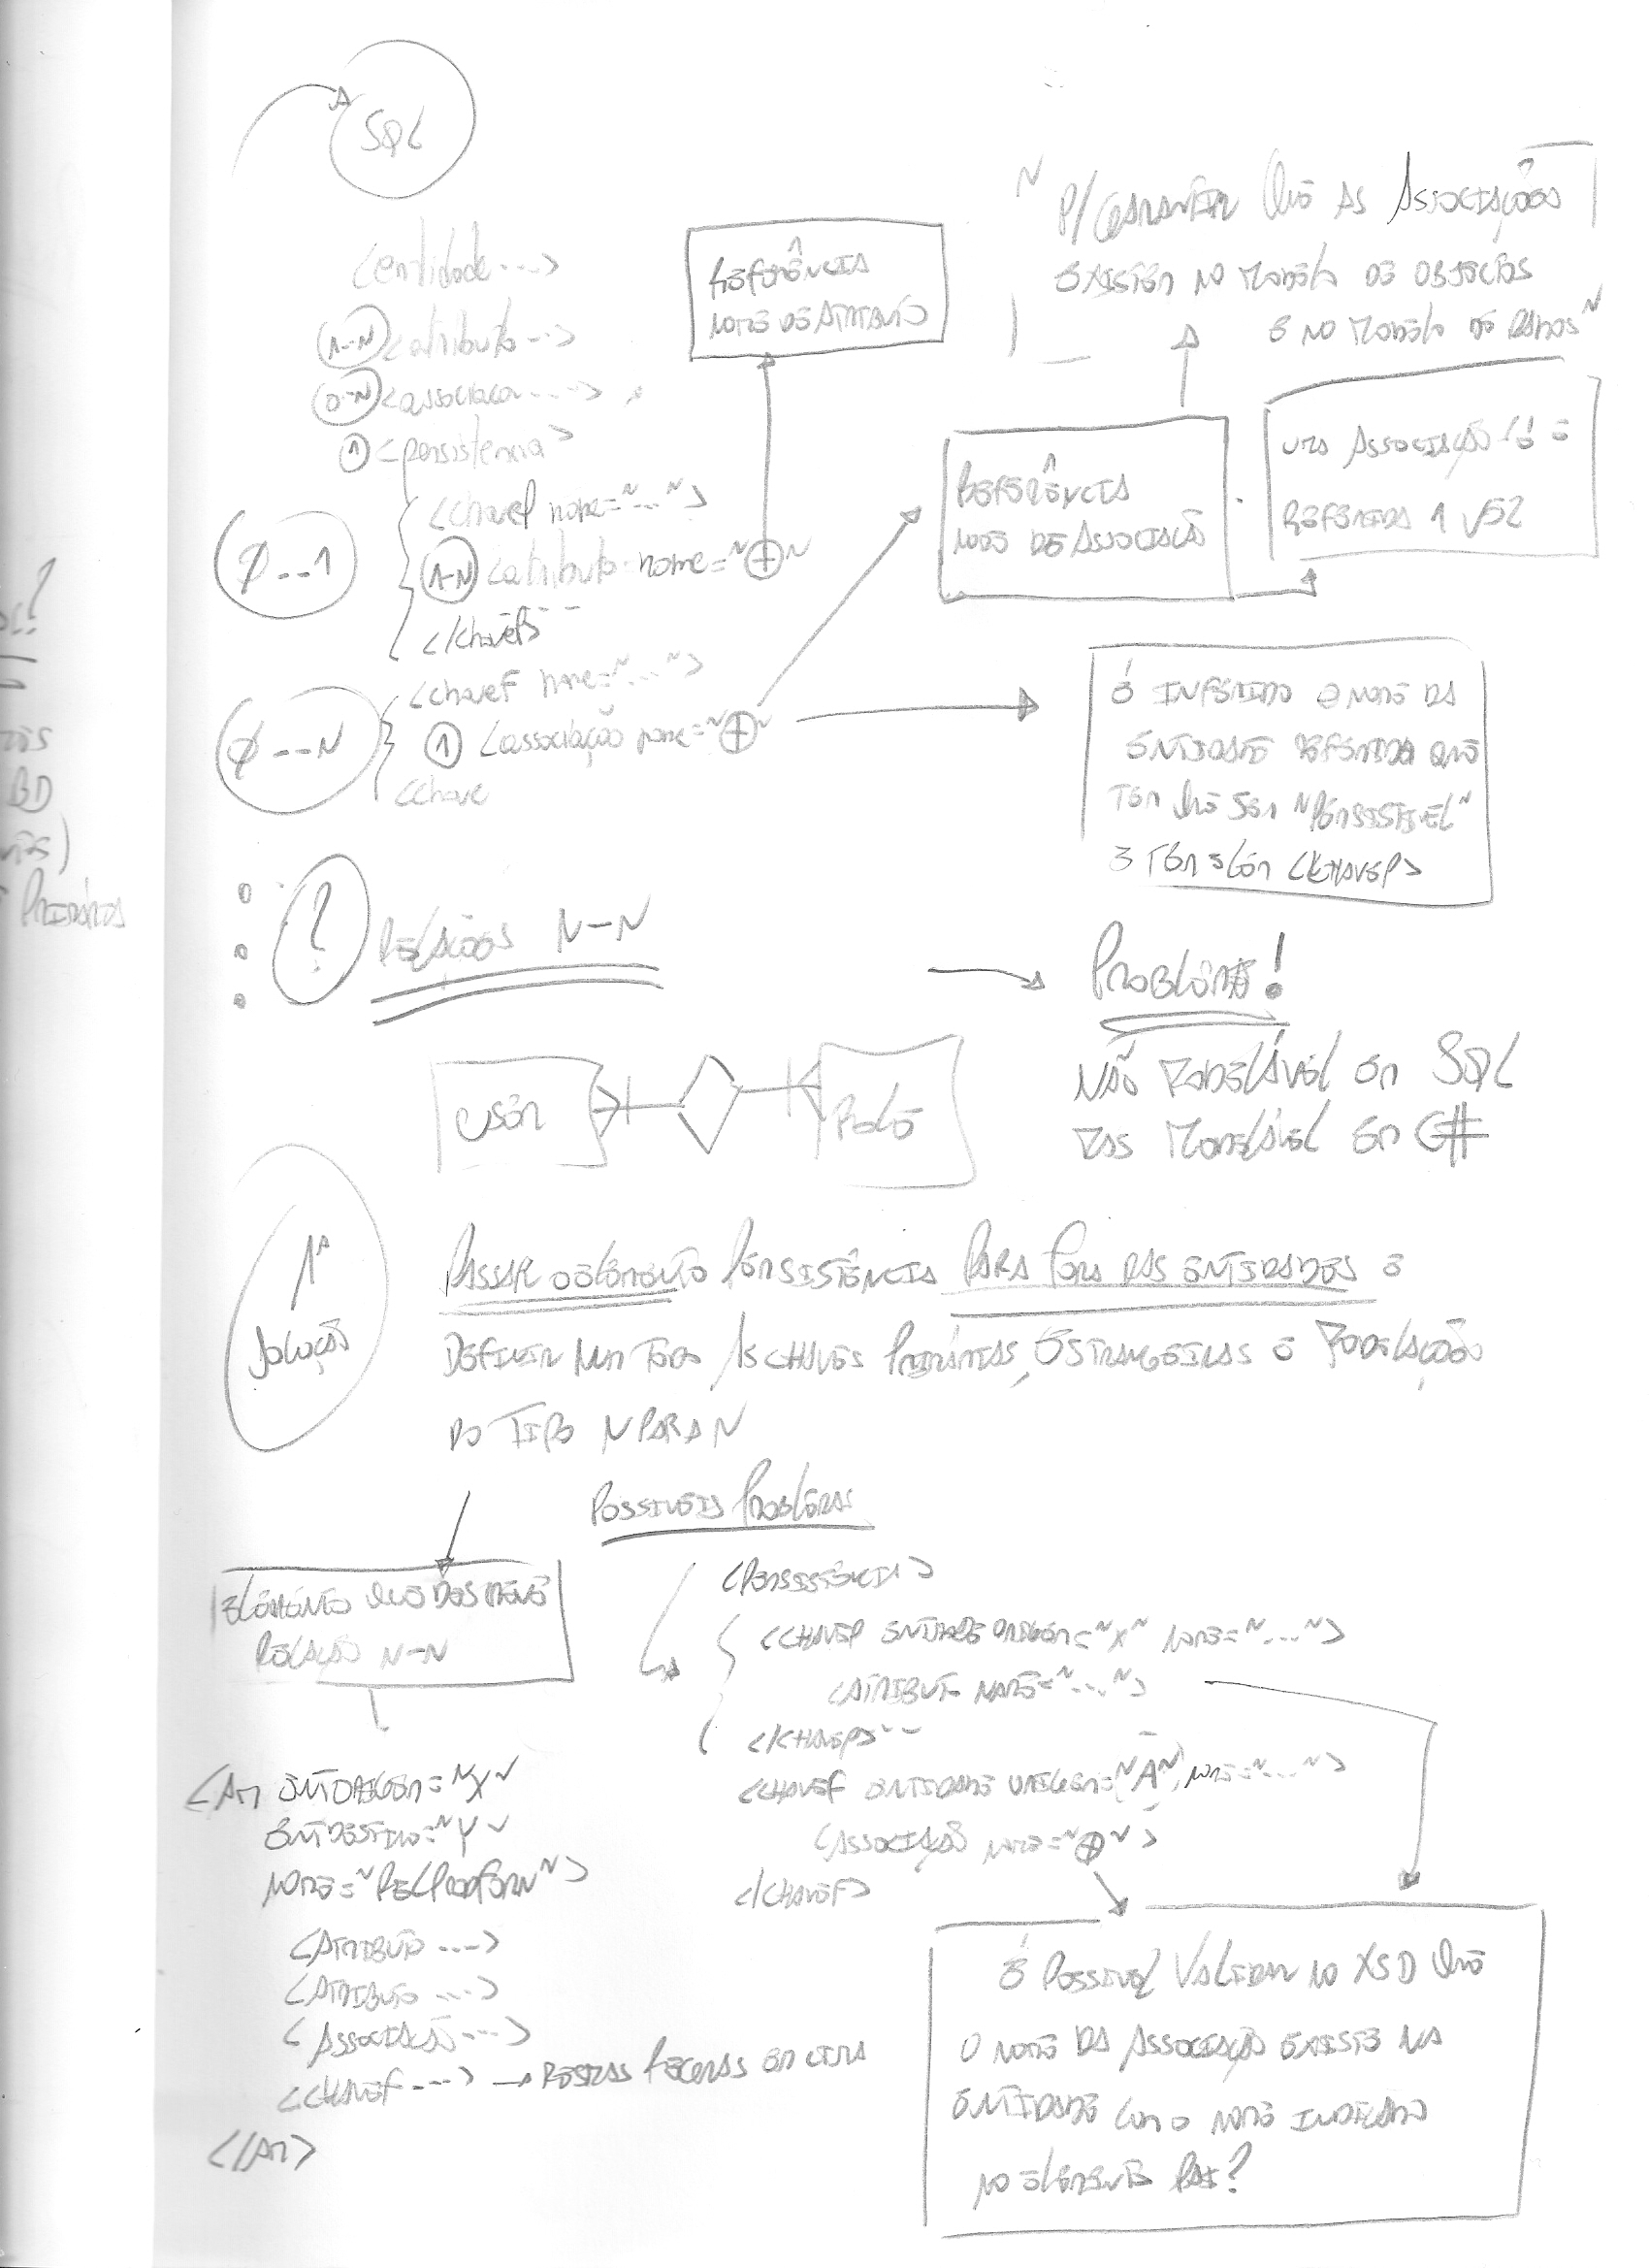 SQL
<entidade ...>
1-N <atributo ...>
0-N <associaca ...>
1 <persistencia>
0..1
<chaveP nome="...">
1-N <atributo nome="⊕"
</chaveP>
0..N
<chaveF nome="...">
1 <associação nome="⊕"
<chave
REFERÊNCIA
NOME DE ATRIBUTO
"P/ GARANTIR QUE AS ASSOCIAÇÕES
EXISTEM NO MODELO DE OBJECTOS
E NO MODELO DE DADOS"
REFERÊNCIA
NOME DE ASSOCIAÇÃO
UMA ASSOCIAÇÃO SÓ É
REFERIDA 1 VEZ
É INFERIDO O NOME DA
ENTIDADE REFERIDA QUE
TEM QUE SER "PERSISTIVEL"
E TEM DE TER <CHAVEP>
BD
PRIMÁRIA
? RELAÇÕES N-N
PROBLEMA!
NÃO MODELÁVEL EM SQL
MAS MODELÁVEL EM C#
USER
ROLE
1ª
SOLUÇÃO
PASSAR O ELEMENTO PERSISTÊNCIA PARA FORA DAS ENTIDADES E
DEFINIR AS CHAVES PRIMÁRIAS, ESTRANGEIRAS E MODELAÇÃO
DO TIPO N PARA N
POSSIVEIS PROBLEMAS
ELEMENTO QUE DESCREVE
RELAÇÃO N-N
<AM ENTORIGEM="X"
ENTDESTINO="Y"
NOME="RELPRODFORN">
<ATRIBUTO ...>
<ATRIBUTO ...>
<ASSOCIAÇÃO ...>
<CHAVEF ...> → REGRAS EM CIMA
</AM>
<PERSISTÊNCIA>
<CHAVEP ENTIDADEORIGEM="X" NOME="...">
<ATRIBUT NOME="...">
</CHAVEP>
<CHAVEF ENTIDADE ORIGEM="A" NOME="...">
<ASSOCIAÇÃO NOME="⊕">
</CHAVEF>
É POSSIVEL VALIDAR NO XSD QUE
O NOME DA ASSOCIAÇÃO EXISTE NA
ENTIDADE COM O NOME INDICADO
NO ELEMENTO PAI?